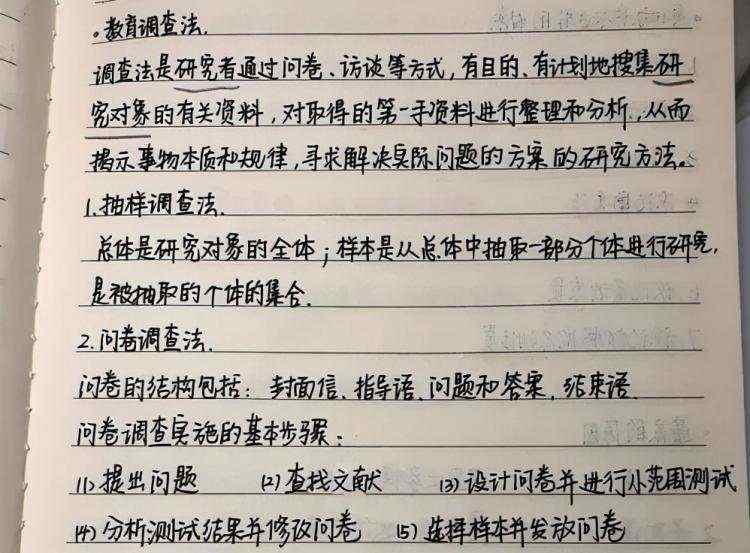 。教育调查法.
调查法是研究者通过问卷、访谈等方式,有目的、有计划地搜集研
究对象的有关资料,对取得的第一手资料进行整理和分析,从而
揭示事物本质和规律,寻求解决实际问题的方案的研究方法。
1.抽样调查法.
总体是研究对象的全体;样本是从总体中抽取一部分个体进行研究,
是被抽取的个体的集合.
2.问卷调查法.
问卷的结构包括:封面信、指导语、问题和答案、结束语
问卷调查实施的基本步骤:
(1)提出问题 (2)查找文献 (3)设计问卷并进行小范围测试
(4)分析测试结果并修改问卷 (5)选择样本并发放问卷